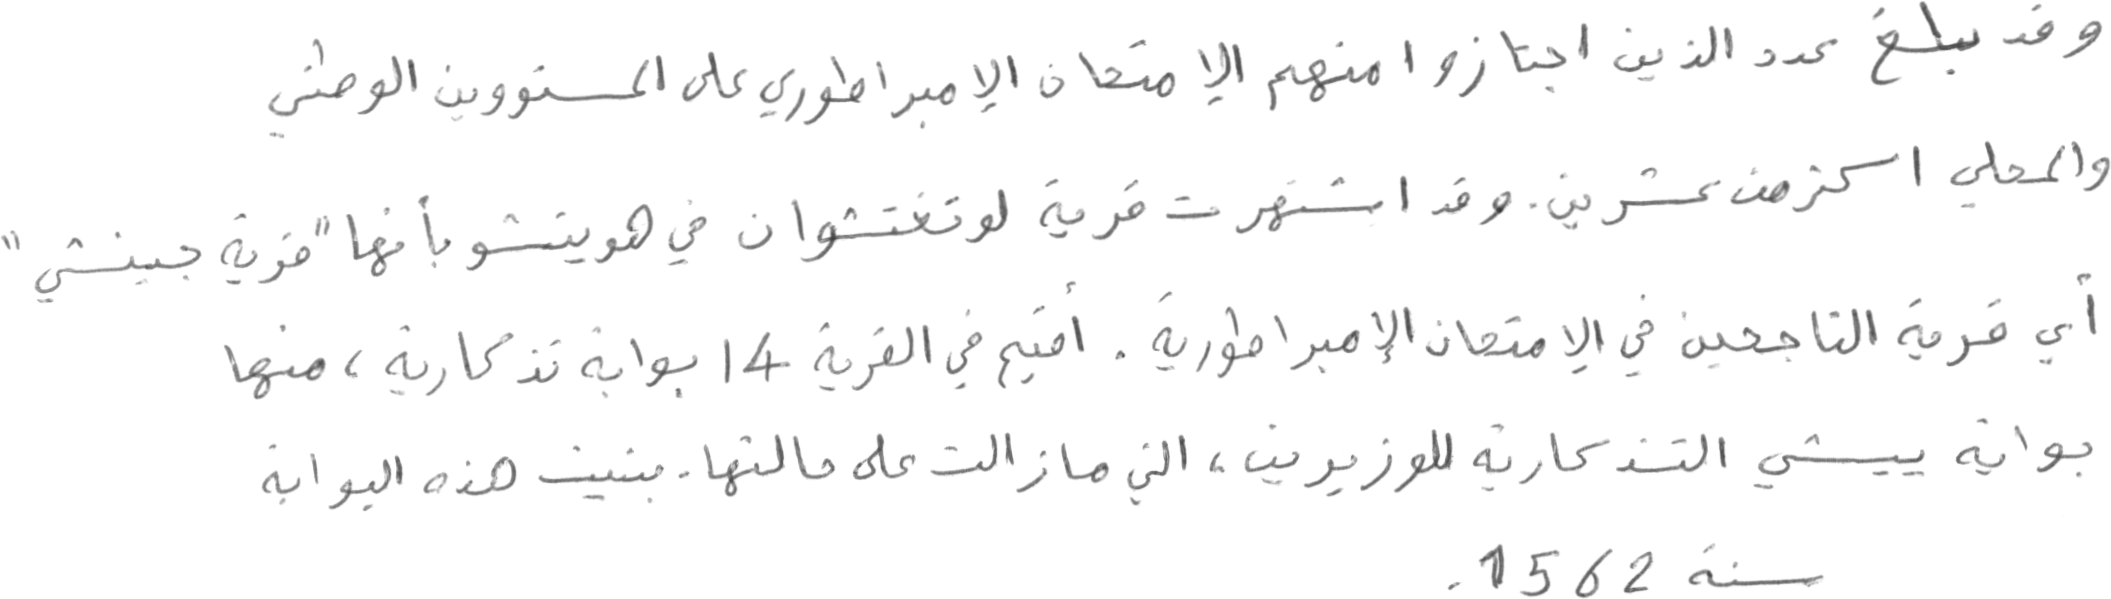 وقد بلغ عدد الذين اجتازوا منهم الإمتحان الإمبراطوري على المستووين الوطني
والمحلي اكثر من عشرين. وقد اشتهرت قرية لوتغتشوان في هويتشو بأنها "قرية جينشي"
أي قرية الناجحين في الإمتحان الإمبراطورية. أقيم في القرية 14 بوابة تذكارية، منها
بوابة ييشي التذكارية للوزيرين، التي مازالت على حالتها. بنيت هذه البوابة
سنة 1562.